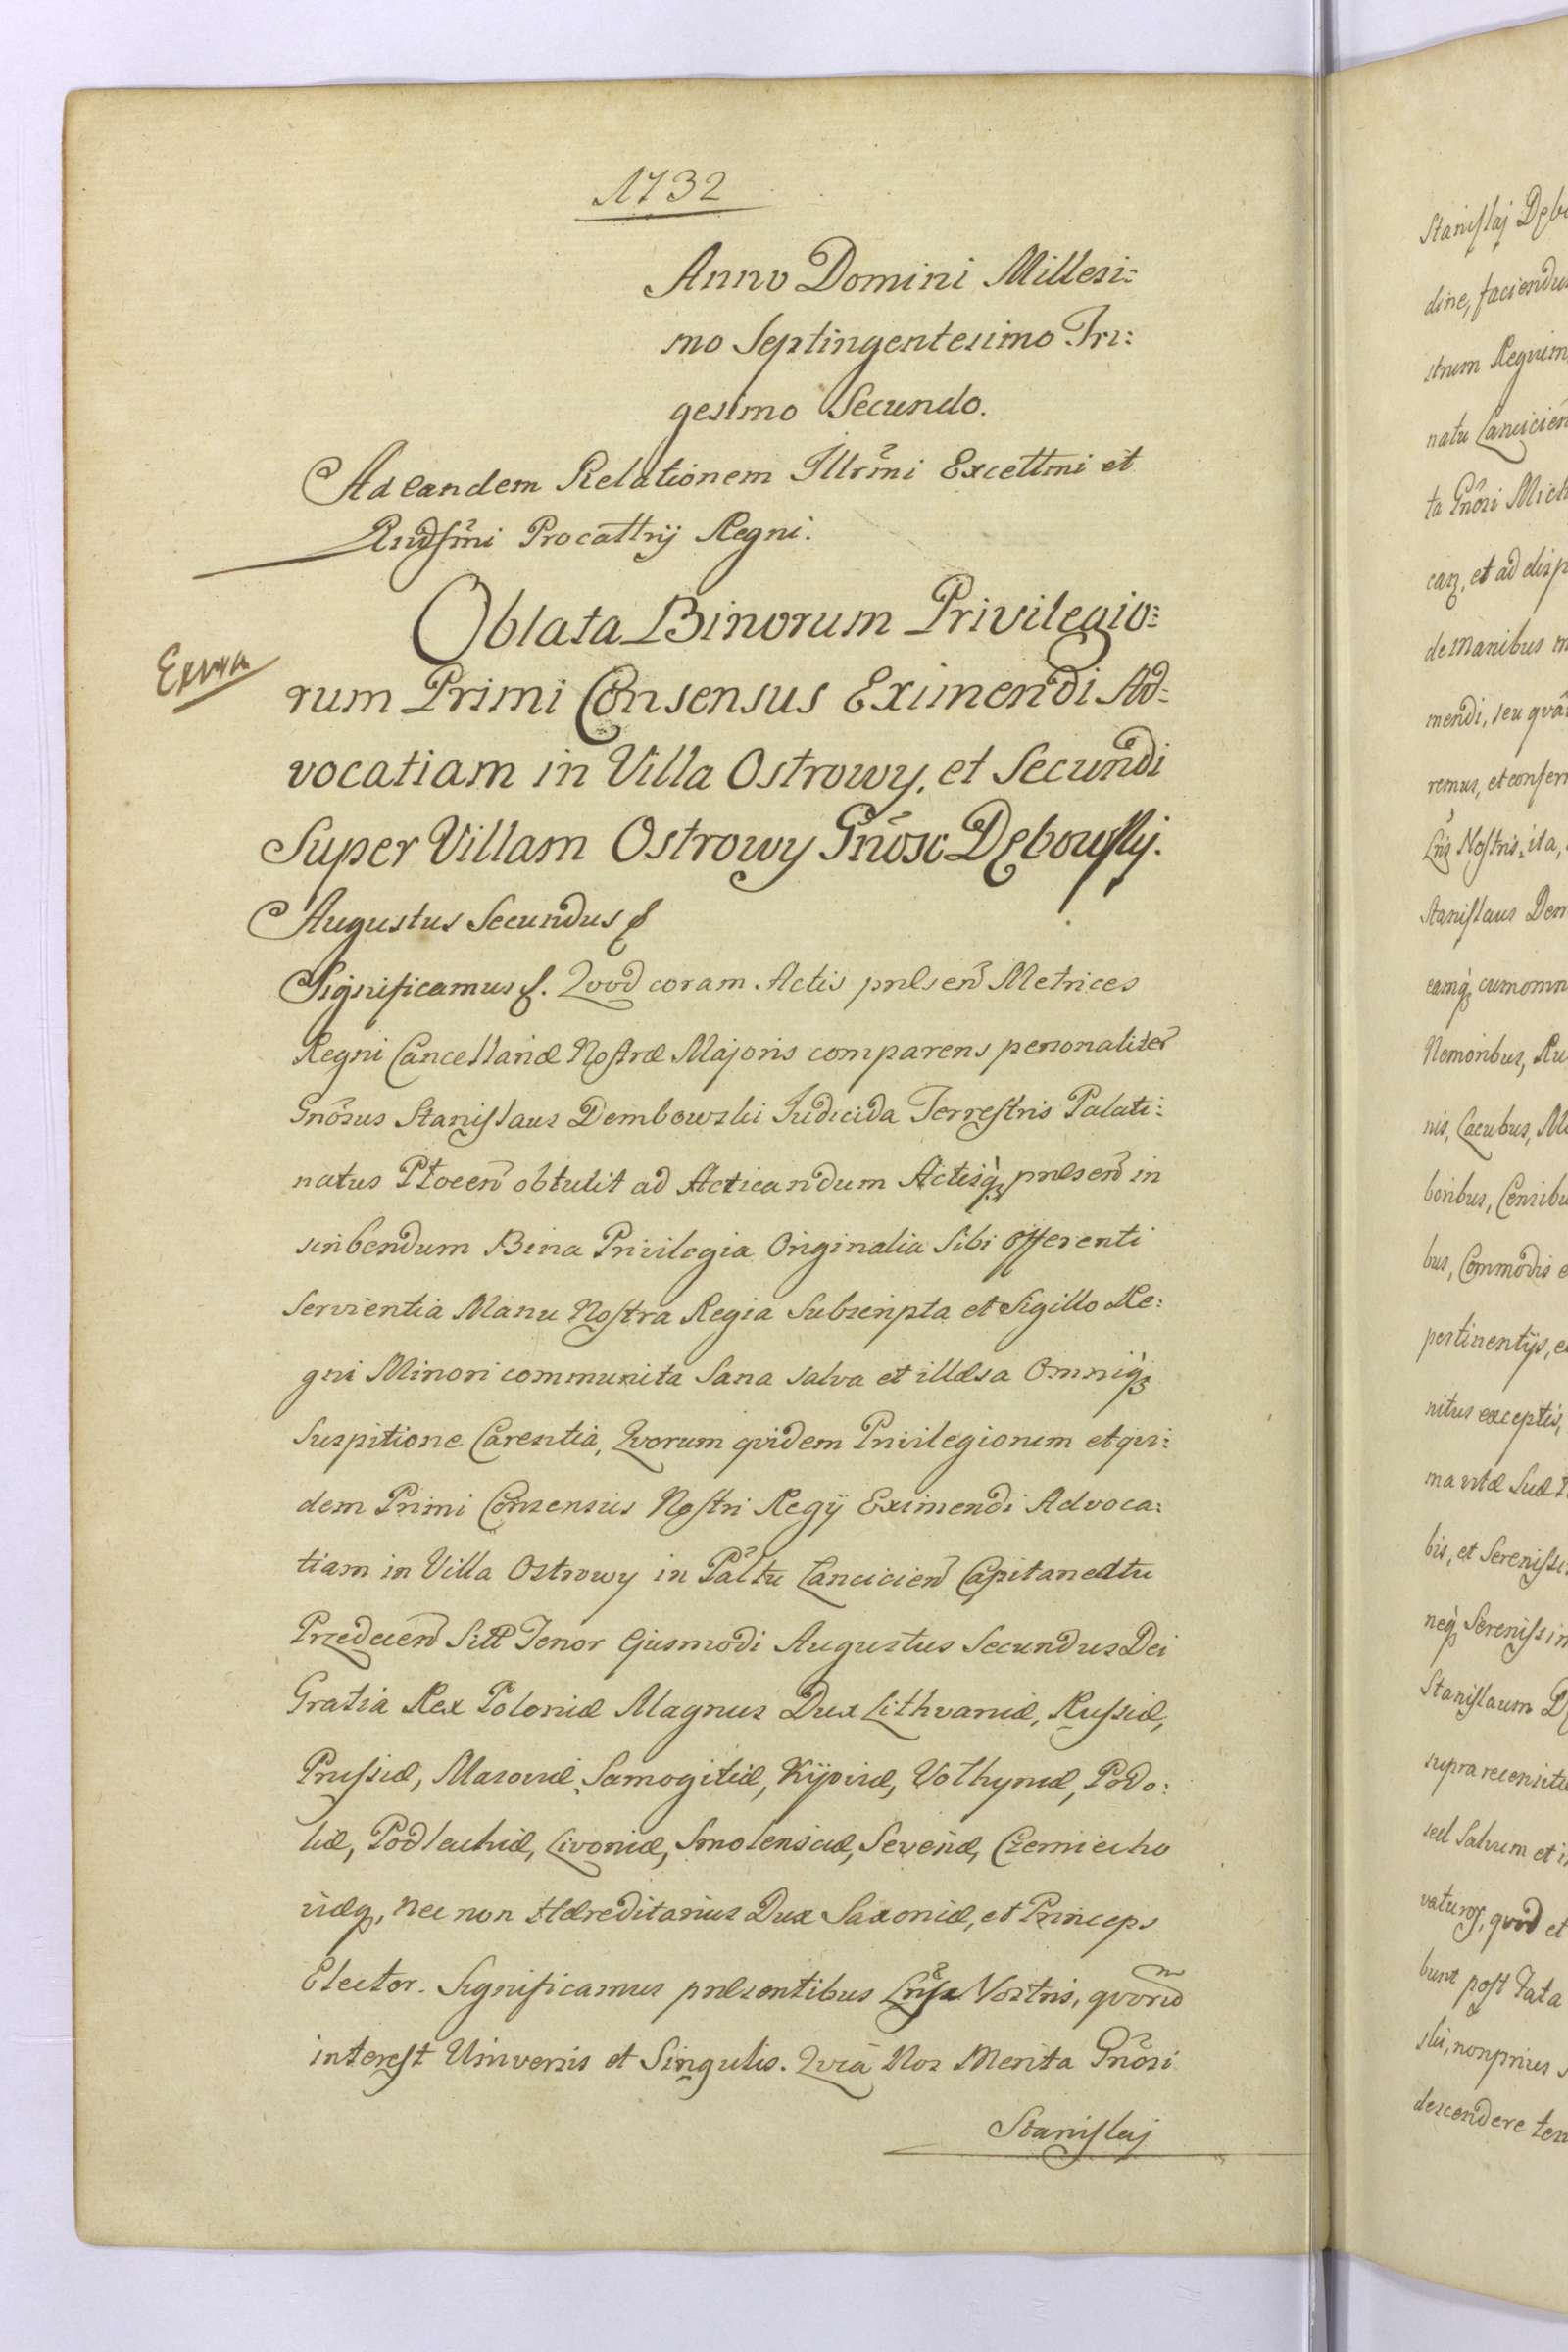 1732
Anno Domini Millesi:
mo Septingentesimo Tri:
gesimo Secundo.
Ad eandem Relationem Illrmi Excellmi et
Rndssmi Procallrij Regni.
Oblata Binorum Privilegio:
rum Primi Consensus Eximendi Ad:
vocatiam in Villa Ostrowy, et Secundi
Super Villam Ostrowy Gnoso Dębowskij.
Augustus Secundus
Significamus. Qvod coram Actis pnlsen Metrices
Regni Cancellariæ Nostræ Majoris comparens personaliter
Gnosus Stanislaus Dembowski Judicida Terrestris Palati:
natus Plocen obtulit ad Acticandum Actisq pnlsen in
scribendum Bina Privilegia Originalia Sibi offerenti
servientia Manu Nostra Regia Subscripta et Sigillo Re:
gni Minori communita Sana salva et illæsa Omniq
Suspitione Carentia, Qvorum qvidem Privilegiorum et qvi:
dem Primi Consensus Nostri Regij Eximendi Advoca:
tiam in Villa Ostrowy in Palttu Lancicien Capitaneatu
Przedecen Tenor Ejusmodi Augustus Secundus Dei
Gratia Rex Poloniæ Magnus Dux Lithvaniæ, Russiæ,
Prussiæ, Masoviæ, Samogitiæ, Kijoviæ, Volhyniæ, Podo:
liæ, Podlachiæ, Livoniæ, Smolensciæ, Severiæ, Czerniecho
viæq, nec non Hæreditarius Dux Saxoniæ, et Princeps
Elector. Significamus præsentibus Lris Nostris, qvorum
interest Universis et Singulis. Qvia Nos Merita Gnosi
Stanislaj
Stanislaj
dine,
strum Regvim
natu Lancicien
ta Gnosi Mich
et ad disp
de manibus m
mendi, seu qva
remus, et confer
Lris Nostris, ita,
Stanislaus Dem
eamq cum omn
Nemoribus, Ru
nis, Lacubus, M
boribus, Censibu
bus, Commodis e
pertinentijs, e
nitus exceptis,
ma vitæ Suæ t
bis, et Serenissi
neq Serenissim
Stanislaum D
supra recensitu
sed Salvum et i
vaturos, qvod et
bunt post Fata
ski, non prius s
descendere ten